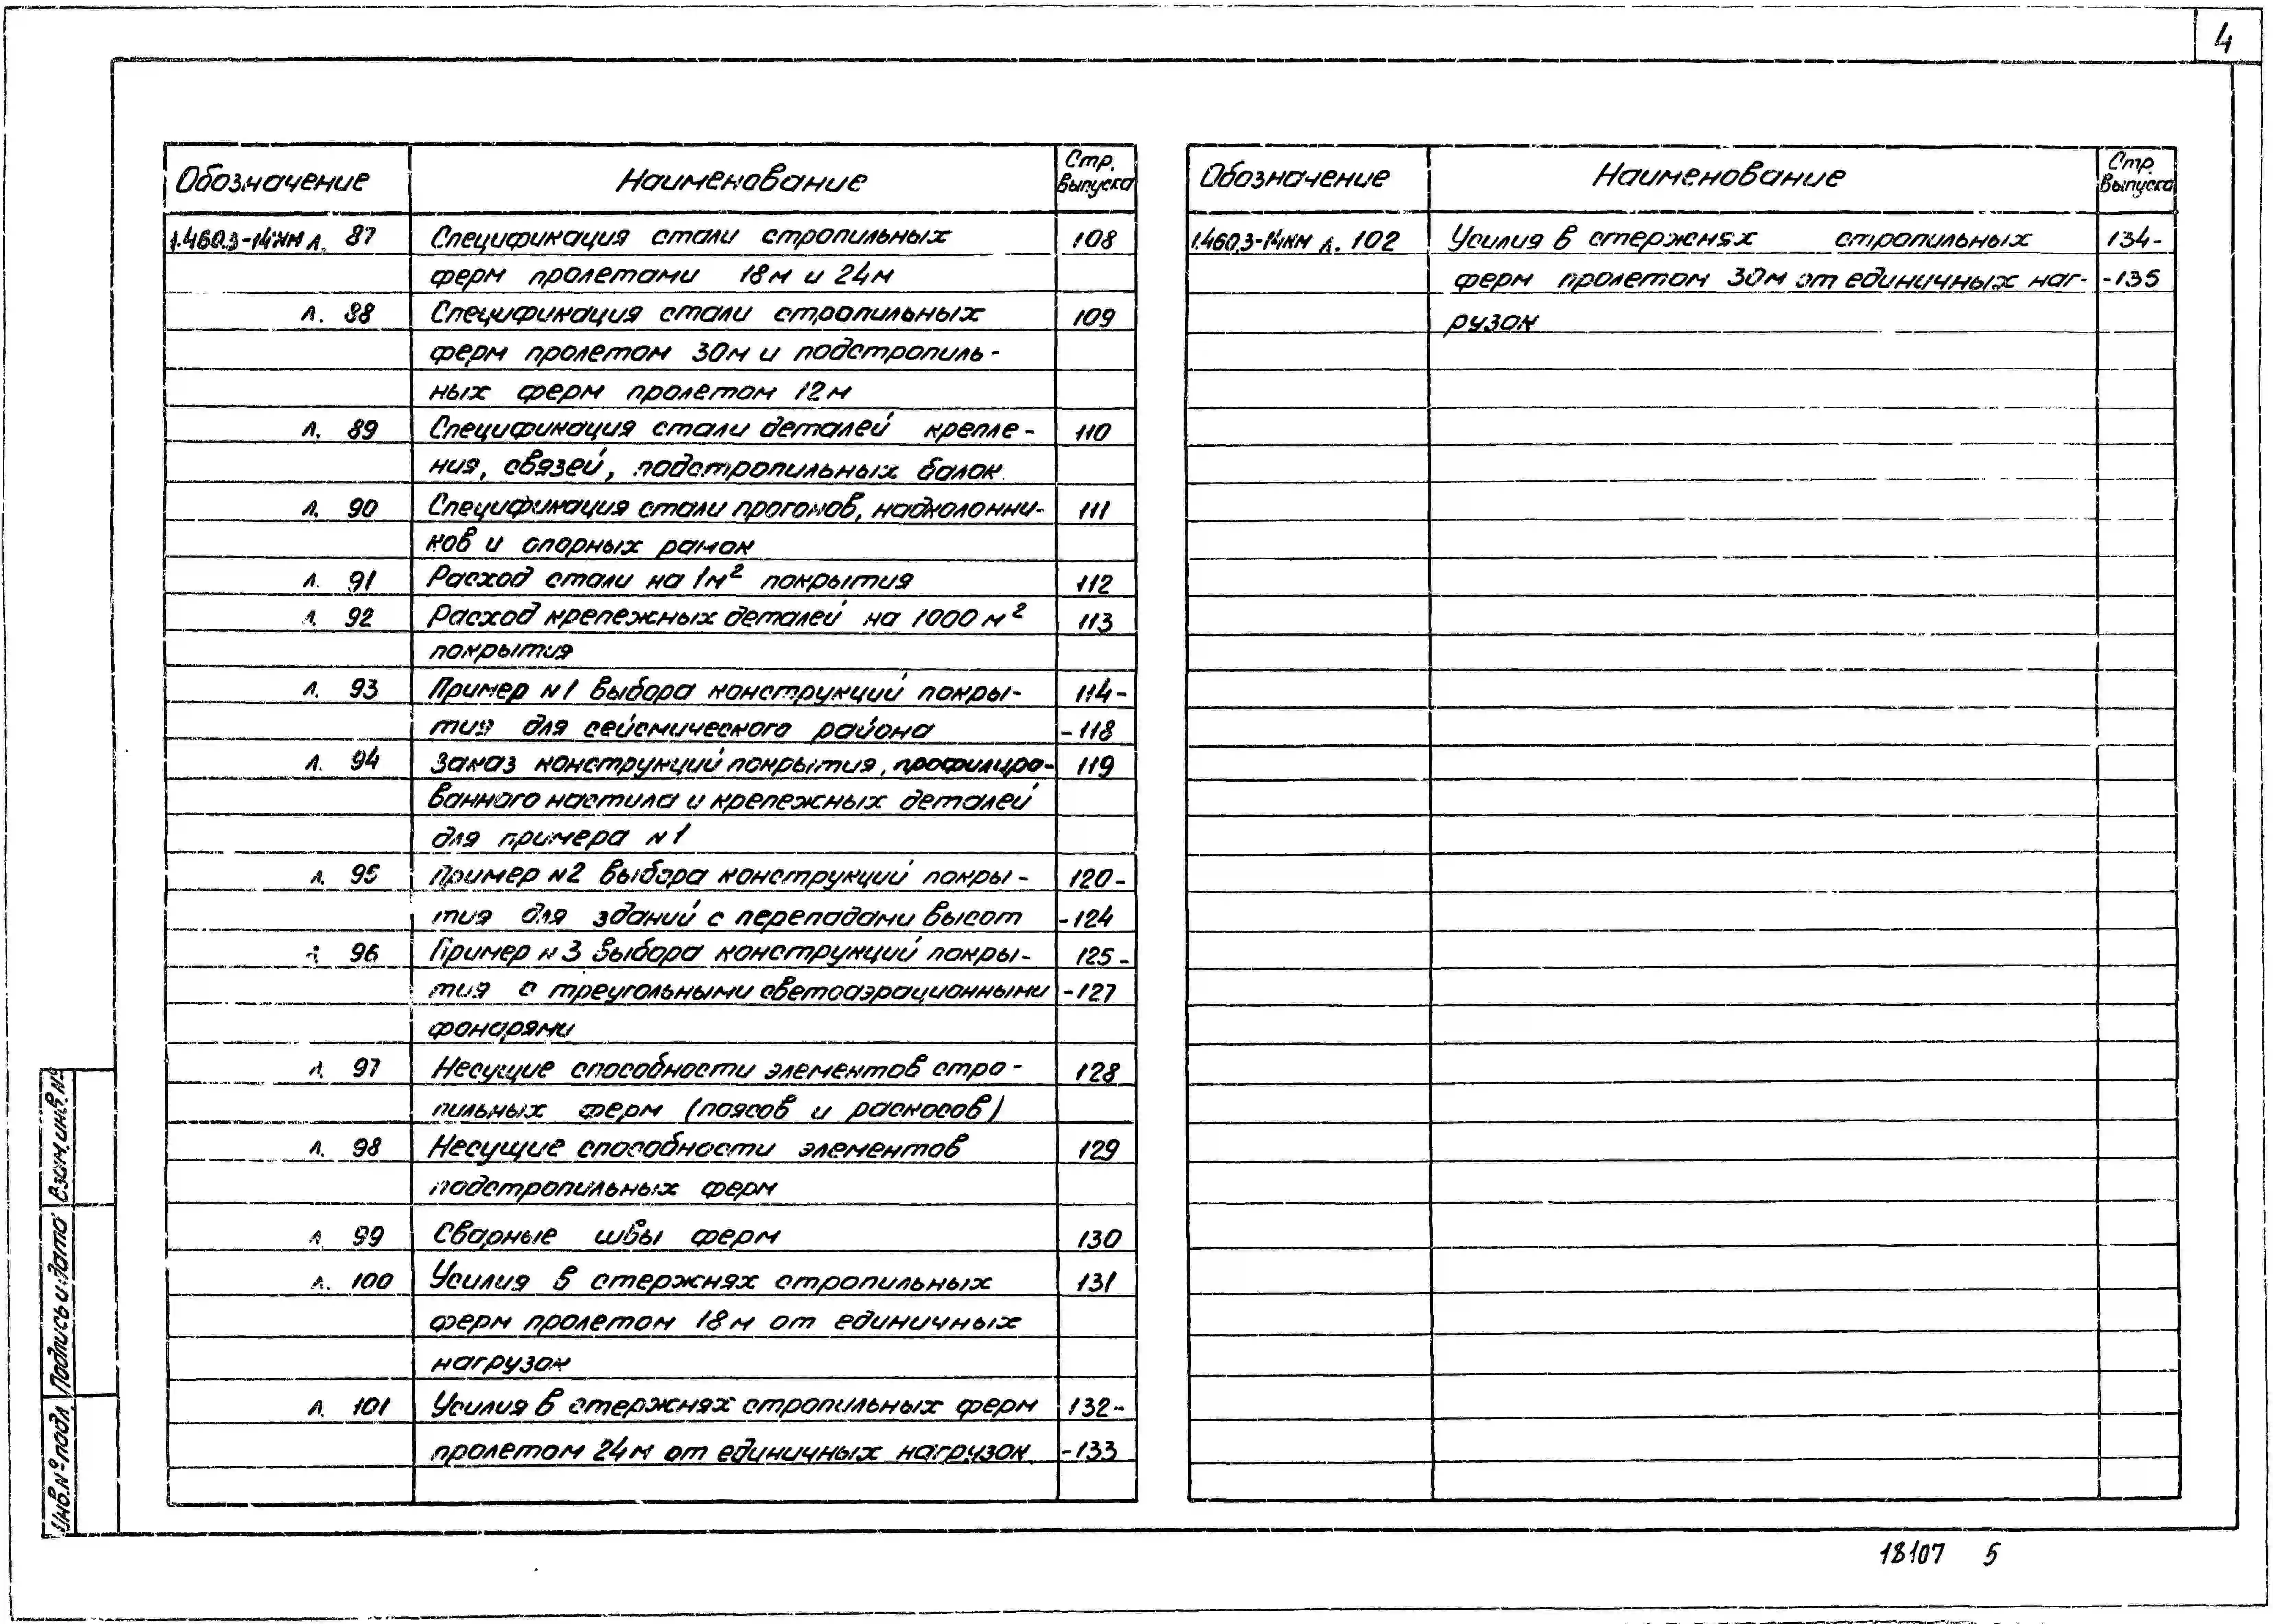 4
Обозначение Наименование Стр. выпуска
1.460.3-14КМ л. 87 Спецификация стали стропильных 108
ферм пролетами 18м и 24м
л. 88 Спецификация стали стропильных 109
ферм пролетом 30м и подстропиль-
ных ферм пролетом 12м
л. 89 Спецификация стали деталей крепле- 110
ния, связей, подстропильных балок.
л. 90 Спецификация стали прогонов, надколонни- 111
ков и опорных рамок
л. 91 Расход стали на 1м² покрытия 112
л. 92 Расход крепежных деталей на 1000 м² 113
покрытия
л. 93 Пример №1 выбора конструкций покры- 114-
тия для сейсмического района -118
л. 94 Заказ конструкций покрытия, профилиро- 119
ванного настила и крепежных деталей
для примера №1
л. 95 Пример №2 выбора конструкций покры- 120-
тия для зданий с перепадами высот -124
л. 96 Пример №3 выбора конструкций покры- 125-
тия с треугольными светоаэрационными -127
фонарями
л. 97 Несущие способности элементов стро- 128
пильных ферм (поясов и раскосов)
л. 98 Несущие способности элементов 129
подстропильных ферм
л. 99 Сварные швы ферм 130
л. 100 Усилия в стержнях стропильных 131
ферм пролетом 18м от единичных
нагрузок
л. 101 Усилия в стержнях стропильных ферм 132-
пролетом 24м от единичных нагрузок -133
Обозначение Наименование Стр. выпуска
1.460.3-14КМ л. 102 Усилия в стержнях стропильных 134-
ферм пролетом 30м от единичных наг- -135
рузок
Взам.инв.№
Подпись и дата
Инв.№ подл.
18107 5